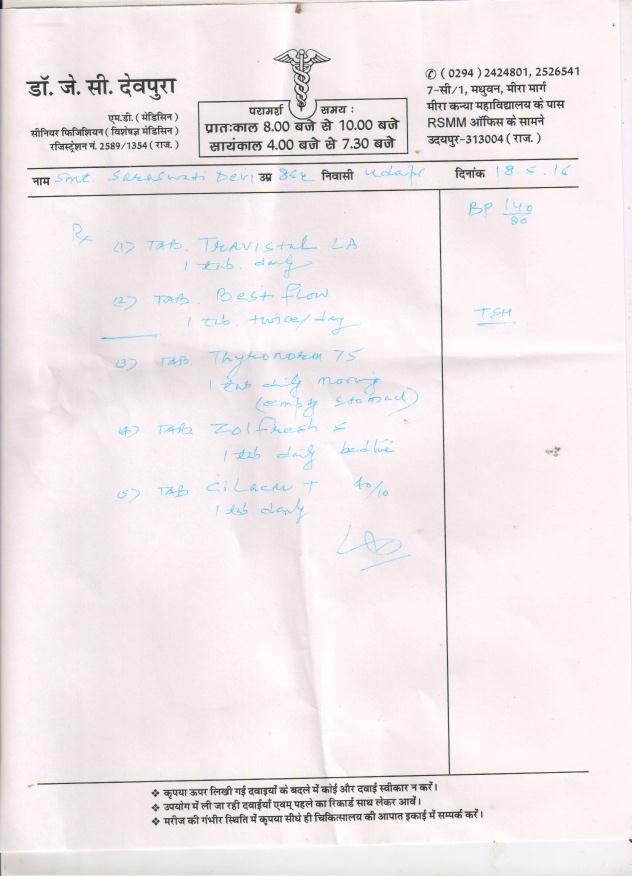 डॉ. जे. सी. देवपुरा
एम.डी. ( मेडिसिन )
सीनियर फिजिशियन ( विशेषज्ञ मेडिसिन )
रजिस्ट्रेशन नं. 2589/1354 ( राज. )
परामर्श समय :
प्रातःकाल 8.00 बजे से 10.00 बजे
सायंकाल 4.00 बजे से 7.30 बजे
✆ ( 0294 ) 2424801, 2526541
7-सी/1, मधुवन, मीरा मार्ग
मीरा कन्या महाविद्यालय के पास
RSMM ऑफिस के सामने
उदयपुर-313004 ( राज. )
नाम Smt. Saraswati Devi उम्र निवासी Udaipr दिनांक 18.5.16
BP 140/80
Rx
(1) TAB. TRAVISTAL LA
1 tab. daily
(2) TAB. Best flow
1 tab. twice/day
TSH
(3) TAB. Thyronorm 75
1 tab daily morning
(empty stomach)
(4) TAB Zolfresh 5
1 tab daily bedtime
(5) TAB CiLACAR T 40/10
1 tab daily
❖ कृपया ऊपर लिखी गई दवाइयों के बदले में कोई और दवाई स्वीकार न करें।
❖ उपयोग में ली जा रही दवाईयाँ एवम् पहले का रिकार्ड साथ लेकर आवें।
❖ मरीज की गंभीर स्थिति में कृपया सीधे ही चिकित्सालय की आपात इकाई में सम्पर्क करें।